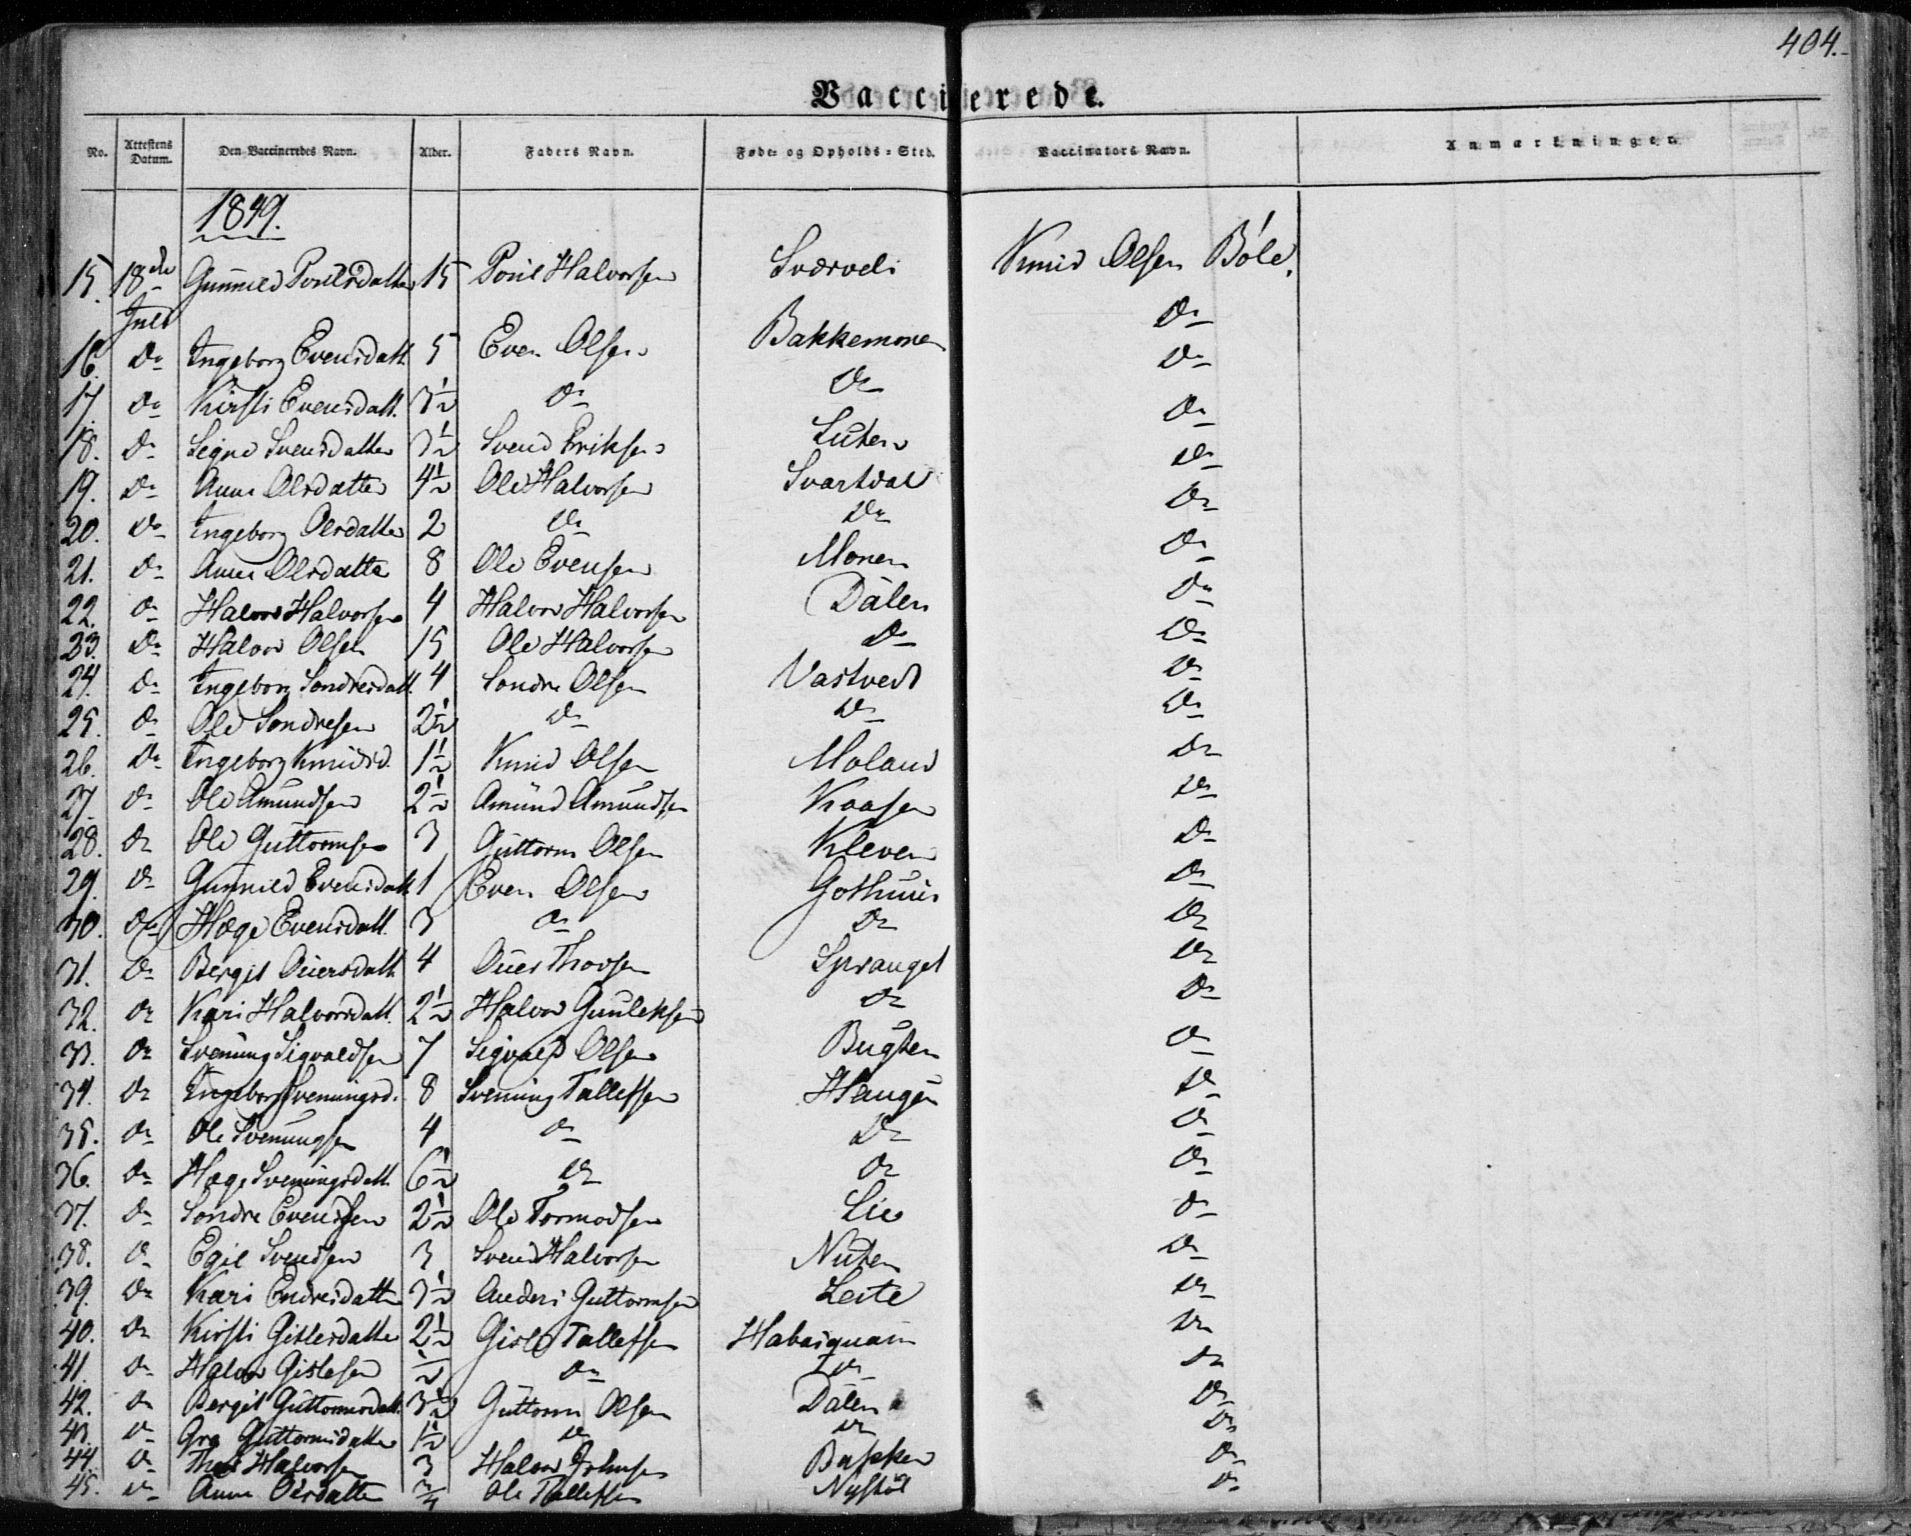 404.
Vaccinerede.
No. Attestens Datum. Den Vaccineredes Navn. Alder. Faders Navn. Føde- og Opholds-Sted. Vaccinators Navn. Anmærkninger.
1849.
15. 18de Juli Gunnild Poulsdatter 15 Poul Halvorsen Sværveli Knud Olsen Bøle.
16. Do Ingeborg Evensdatt. 5 Even Olsen Bakkemonen Do
17. Do Kirsti Evensdatt. 3½ Do Do Do
18. Do Signe Svensdatter 3½ Svend Eriksen Luten Do
19. Do Anne Olsdatter 4½ Ole Halvorsen Svartdal Do
20. Do Ingeborg Olsdatter 2 Do Do Do
21. Do Anne Olsdatter 8 Ole Evensen Monen Do
22. Do Halvor Halvorsen 4 Halvor Halvorsen Dalen Do
23. Do Halvor Olsen 15 Ole Halvorsen Do Do
24. Do Ingeborg Sondresdatt. 4 Sondre Olsen Vastvedt Do
25. Do Ole Sondresen 2½ Do Do Do
26. Do Ingeborg Knudsd. 1½ Knud Olsen Moland Do
27. Do Ole Amundsen 2½ Amund Amundsen Kaasen Do
28. Do Ole Guttormsen 3 Guttorm Olsen Kleven Do
29. Do Gunnild Evensdatt. 1 Even Olsen Gothuus Do
30. Do Hæge Evensdatt. 3 Do Do Do
31. Do Bergit Duersdatt. 4 Duer Thovsen Spranget Do
32. Do Kari Halvorsdatt. 2½ Halvor Gunleksen Do Do
33. Do Svenung Sigvaldsen 7 Sigvald Olsen Bugten Do
34. Do Ingeborg Svenungsd. 8 Svenung Tallefsen Haugen Do
35. Do Ole Svenungsen 4 Do Do Do
36. Do Hæge Svenungsdatt. 6½ Do Do Do
37. Do Sondre Evensen 2½ Ole Tormodsen Lie Do
38. Do Egil Svendsen 3 Svend Halvorsen Nuten Do
39. Do Kari Endresdatter 3½ Guttormsen Leite Do
40. Do Kirsti Gislesdatter 2½ Gisle Tallefsen Do
41. Do Halvor Gislesen ½ Do Do Do
42. Do Bergit Guttormsdatt. 3½ Guttorm Olsen Dalen Do
43. Do Gro Guttormsdatter 1½ Do Do Do
44. Do Halvorsen 3 Halvor Johnsen Bakken Do
45. Do Anne Olsdatter ¾ Ole Tallefsen Nystøl Do